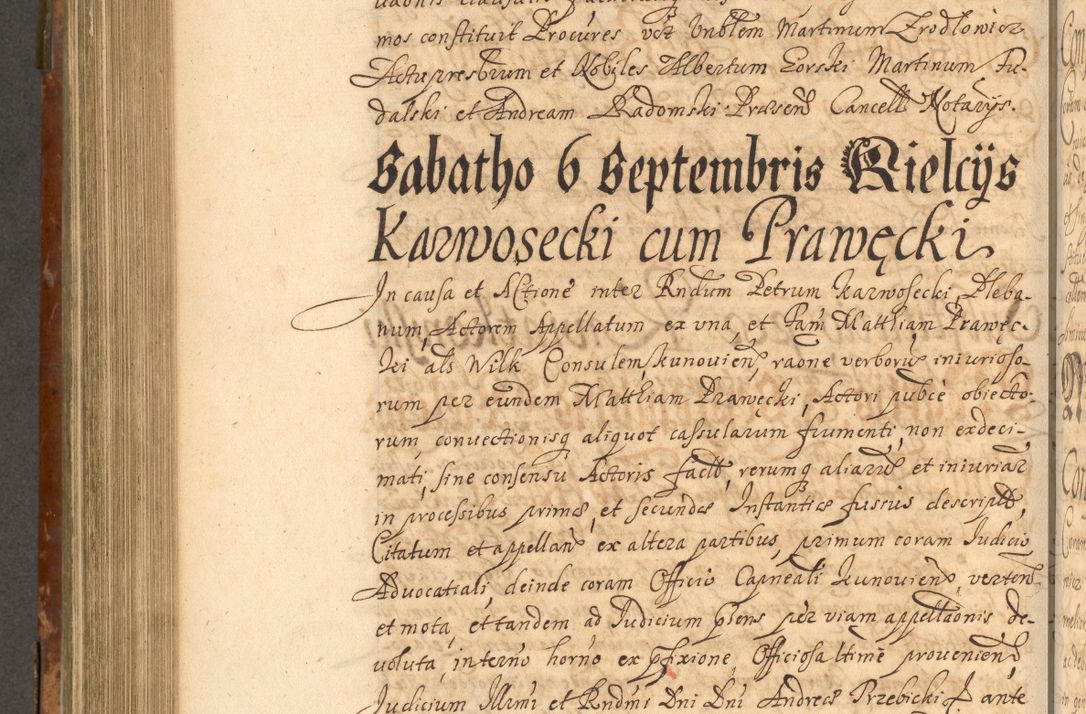 mos constituit Procures vẽt Unblem Martinum Zrodlowicz
Actupresbrum et Nobiles Albertum Gorski Martinum Fu-
dalski et Andream Radomski Præsen Cancell Notarÿs.
Sabatho 6 Septembris Kielcÿs
Karwosecki cum Prawęcki
In causa et Actione inter Rndum Petrum Karwosecki Pleba-
num, Actorem Appellatum ex una, et Fam Matthiam Prawęc-
ki als Wilk Consulem Kunovien, raone verborũ iniurioso-
rum per eundem Matthiam Prawęcki, Actori pubce obiecto-
rum convectionisq aliquot cassularum frumenti, non exdeci-
mati, sine consensu Actoris fact, rerumq aliarũ et iniuriar
in processibus primæ, et secundæ Instantiæ fusius descript,
Citatum et appellan ex altera partibus, primum coram Iudicio
Advocatiali, deinde coram Officio Capneali Kunovien, verten
et mota, et tandem ad Iudicium pñs per viam appellaonis de-
voluta, in terno horno ex pfixione Officiosa ltime provenien
Iudicium Illmi et Rndmi Dni Dni Andreæ Trzebicki P ante